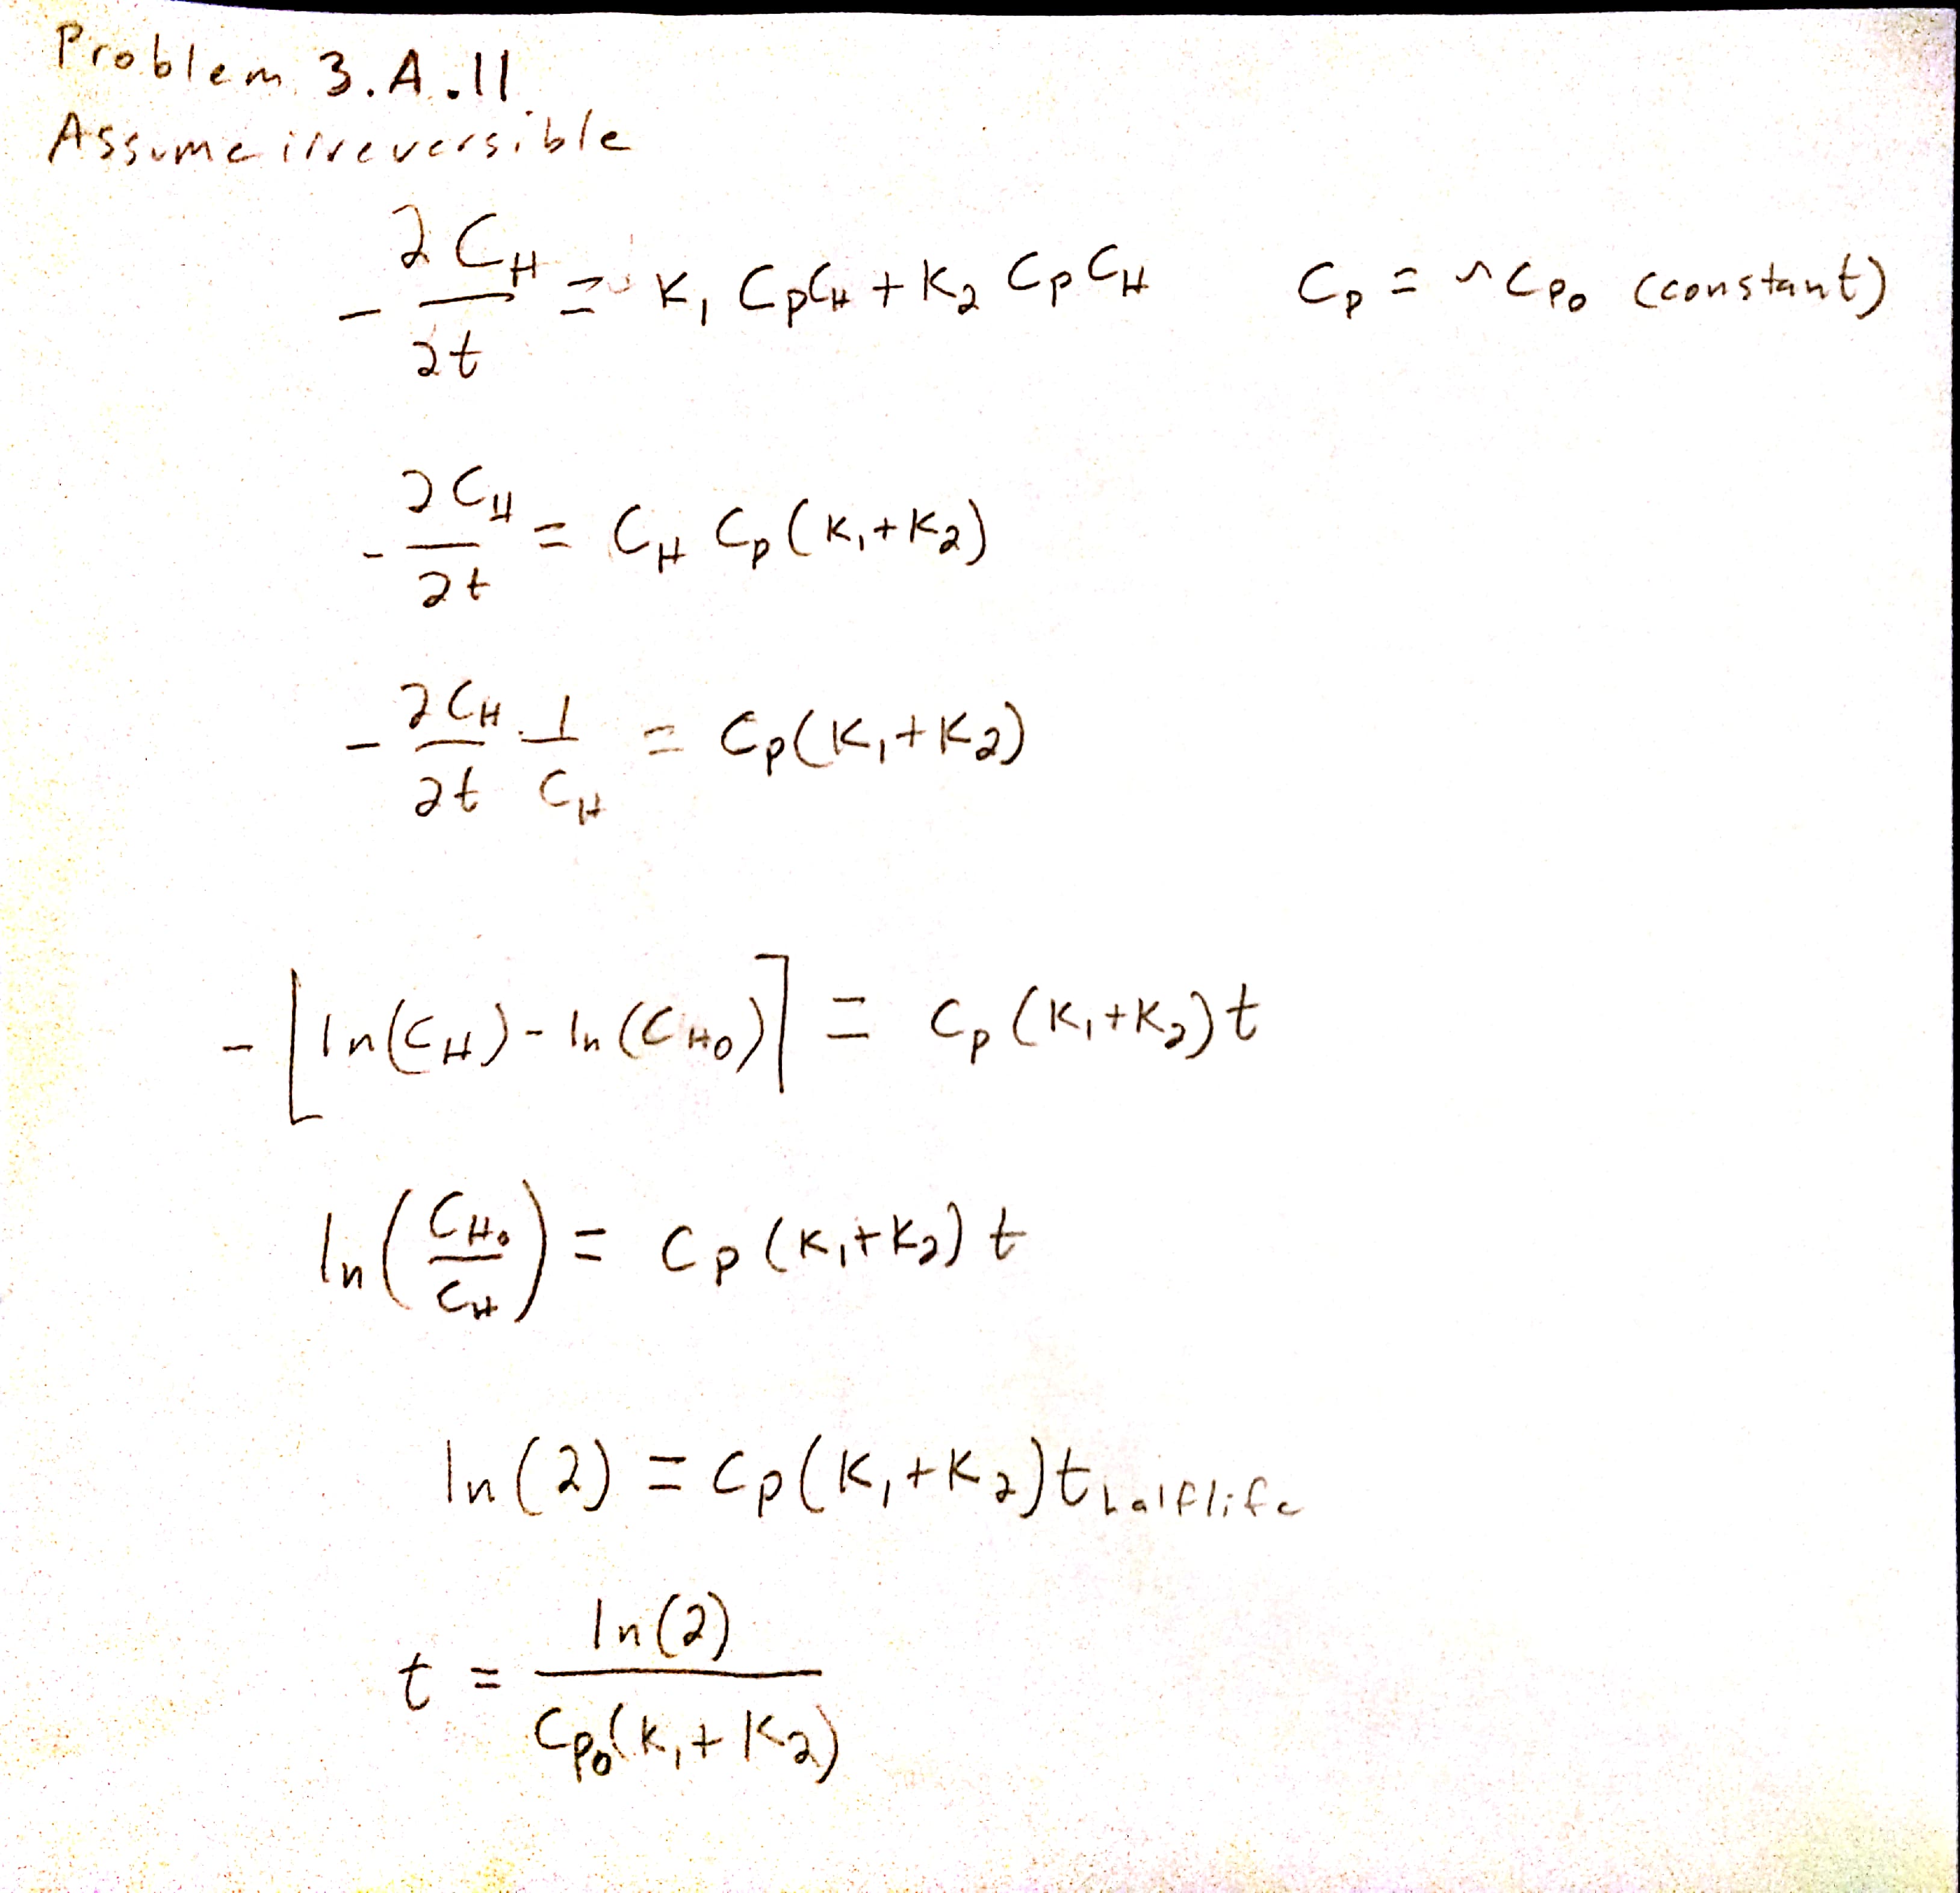 Problem 3.A.11
Assume irreversible
- ∂C_H/∂t = K₁ C_P C_H + K₂ C_P C_H    C_P = ~C_P₀ (constant)
- ∂C_H/∂t = C_H C_P (K₁+K₂)
- ∂C_H/∂t 1/C_H = C_P(K₁+K₂)
- [ln(C_H) - ln(C_H₀)] = C_P (K₁+K₂)t
ln(C_H₀/C_H) = C_P (K₁+K₂) t
ln(2) = C_P(K₁+K₂)t_halflife
t = ln(2)/C_P₀(K₁+K₂)